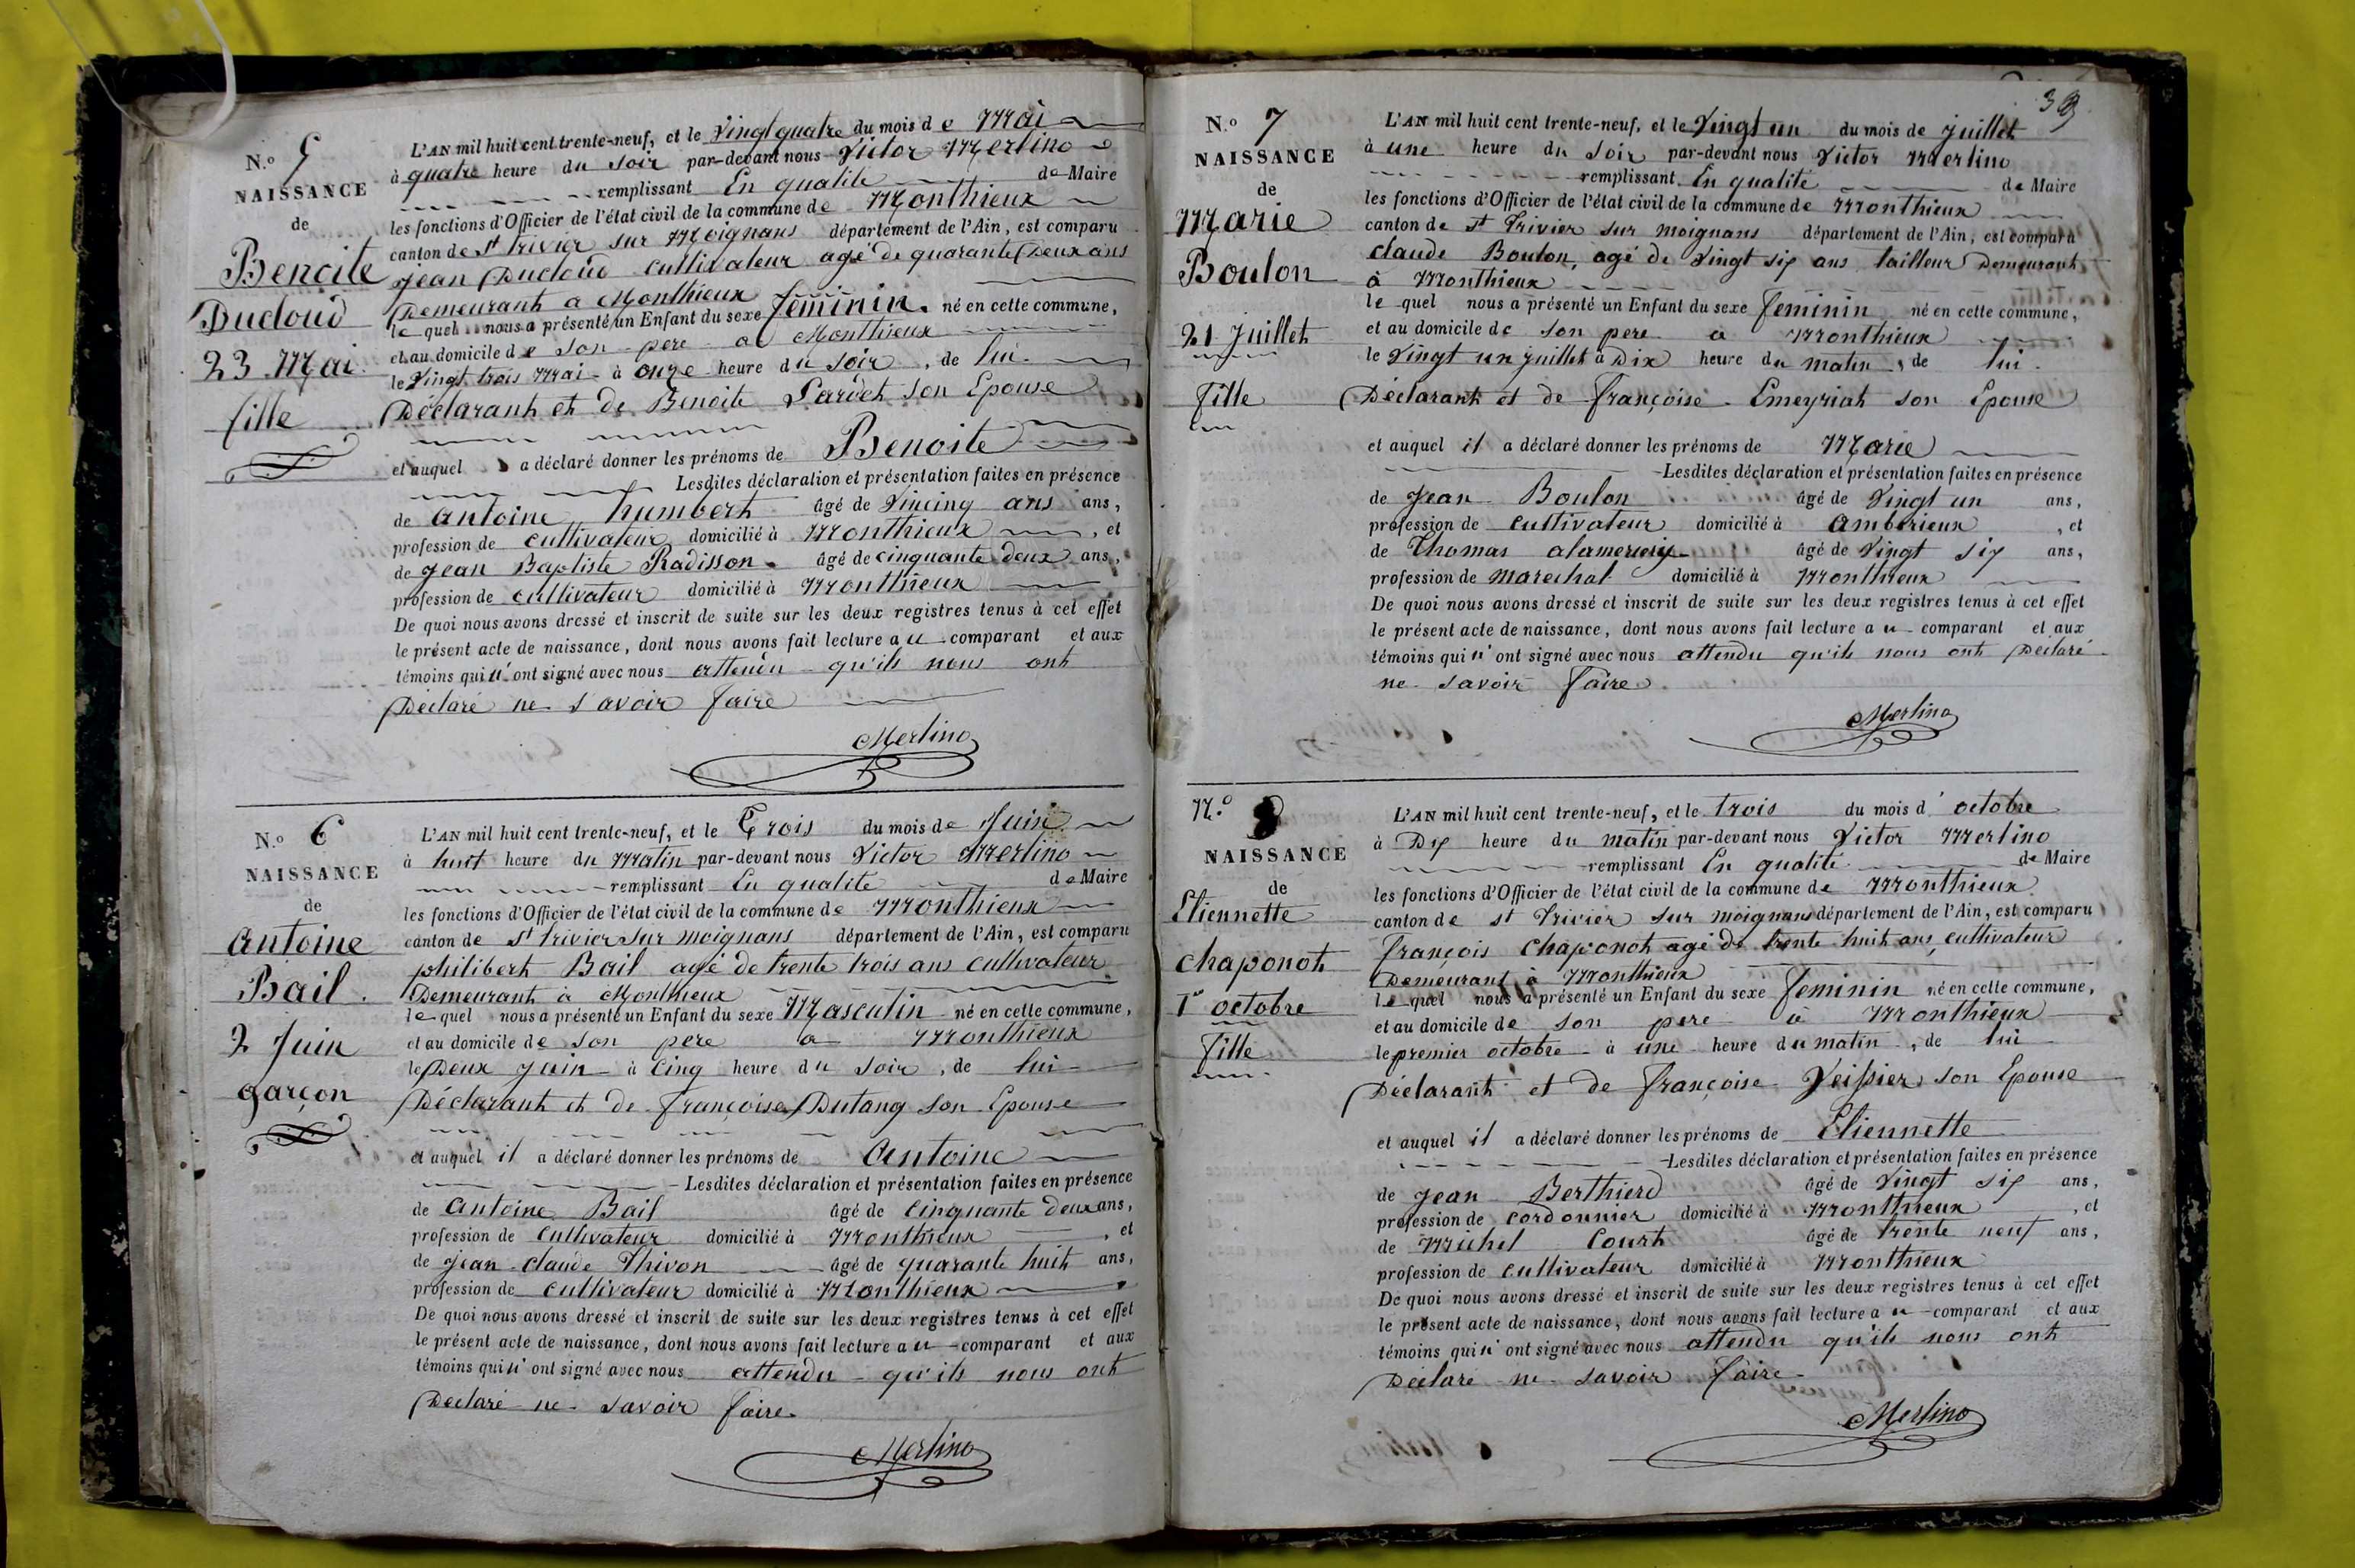 N.o 5
NAISSANCE
de
Benoite
Ducloud
23 Mai
fille
L'AN mil huit cent trente-neuf, et le Vingt quatre du mois de Mai
à quatre heure du soir par-devant nous Victor Merlino
remplissant En qualité de Maire
les fonctions d'Officier de l'état civil de la commune de Monthieux
canton de St trivier sur Moignans département de l'Ain, est comparu
Jean Ducloud cultivateur agé de quarante Deux ans
Demeurant a Monthieux
le quel nous a présenté un Enfant du sexe féminin né en cette commune,
et au domicile de son pere a Monthieux
le Vingt trois Mai à onze heure du soir, de lui
Déclarant et de Benoite son Epouse
et auquel a déclaré donner les prénoms de Benoite
Lesdites déclaration et présentation faites en présence
de antoine humbert âgé de Vincinq ans ans,
profession de cultivateur domicilié à Monthieux, et
de Jean Baptiste Radisson âgé de cinquante deux ans,
profession de cultivateur domicilié à Monthieux
De quoi nous avons dressé et inscrit de suite sur les deux registres tenus à cet effet
le présent acte de naissance, dont nous avons fait lecture au comparant et aux
témoins qui n'ont signé avec nous attendu qu'ils nous ont
Déclaré ne savoir faire
Merlino
N.o 6
NAISSANCE
de
antoine
Bail
2 Juin
garçon
L'AN mil huit cent trente-neuf, et le Trois du mois de Juin
à huit heure du Matin par-devant nous Victor Merlino
remplissant En qualité de Maire
les fonctions d'Officier de l'état civil de la commune de Monthieux
canton de St trivier sur moignans département de l'Ain, est comparu
philibert Bail agé de trente trois ans cultivateur
Demeurant à Monthieux
le quel nous a présenté un Enfant du sexe Masculin né en cette commune,
et au domicile de son pere a Monthieux
le Deux juin à Cinq heure du soir, de lui
Déclarant et de françoise Dutang son Epouse
et auquel il a déclaré donner les prénoms de Antoine
Lesdites déclaration et présentation faites en présence
de Antoine Bail âgé de Cinquante deux ans,
profession de Cultivateur domicilié à Monthieux, et
de jean claude Thivon âgé de quarante huit ans,
profession de cultivateur domicilié à Monthieux
De quoi nous avons dressé et inscrit de suite sur les deux registres tenus à cet effet
le présent acte de naissance, dont nous avons fait lecture au comparant et aux
témoins qui n'ont signé avec nous attendu qu'ils nous ont
Déclaré ne savoir faire
Merlino
N.o 7
NAISSANCE
de
Marie
Boulon
21 Juillet
fille
L'AN mil huit cent trente-neuf, et le Vingt un du mois de juillet
à une heure du soir par-devant nous Victor Merlino
remplissant En qualité de Maire
les fonctions d'Officier de l'état civil de la commune de Monthieux
canton de St Trivier sur moignans département de l'Ain, est comparu
claude Boulon, agé de Vingt six ans tailleur Demeurant
à Monthieux
le quel nous a présenté un Enfant du sexe feminin né en cette commune,
et au domicile de son pere a Monthieux
le Vingt un juillet à Dix heure du matin, de lui
Déclarant et de françoise Emeyriat son Epouse
et auquel il a déclaré donner les prénoms de Marie
Lesdites déclaration et présentation faites en présence
de Jean Boulon âgé de Vingt un ans,
profession de cultivateur domicilié à Amberieux, et
de Thomas âgé de Vingt six ans,
profession de marechal domicilié à Monthieux
De quoi nous avons dressé et inscrit de suite sur les deux registres tenus à cet effet
le présent acte de naissance, dont nous avons fait lecture au comparant et aux
témoins qui n'ont signé avec nous attendu qu'ils nous ont Déclaré
ne savoir faire
Merlino
N.o 8
NAISSANCE
de
Etiennette
chaponot
1er octobre
fille
L'AN mil huit cent trente-neuf, et le trois du mois d'octobre
à Dix heure du matin par-devant nous Victor Merlino
remplissant En qualité de Maire
les fonctions d'Officier de l'état civil de la commune de Monthieux
canton de st Trivier sur moignans département de l'Ain, est comparu
françois chaponot agé de trente huit ans cultivateur
Demeurant à Monthieux
le quel nous a présenté un Enfant du sexe feminin né en cette commune,
et au domicile de son pere à Monthieux
le premier octobre à une heure du matin, de lui
Déclarant et de françoise Veissier son Epouse
et auquel il a déclaré donner les prénoms de Etiennette
Lesdites déclaration et présentation faites en présence
de Jean Berthierd âgé de Vingt six ans,
profession de cordonnier domicilié à Monthieux, et
de Michel Court âgé de trente neuf ans,
profession de cultivateur domicilié à Monthieux
De quoi nous avons dressé et inscrit de suite sur les deux registres tenus à cet effet
le présent acte de naissance, dont nous avons fait lecture au comparant et aux
témoins qui n'ont signé avec nous attendu qu'ils nous ont
Déclaré ne savoir faire
Merlino